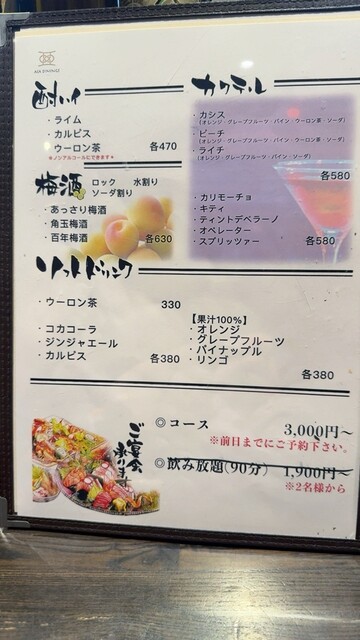 AIA DININGS
酎ハイ
・ライム
・カルピス
・ウーロン茶 各470
※ノンアルコールにできます※
梅酒 ロック 水割り
ソーダ割り
・あっさり梅酒
・角玉梅酒
・百年梅酒 各630
カクテル
・カシス
(オレンジ・グレープフルーツ・パイン・ウーロン茶・ソーダ)
・ピーチ
(オレンジ・グレープフルーツ・パイン・ウーロン茶・ソーダ)
・ライチ
(オレンジ・グレープフルーツ・パイン・ソーダ)
各580
・カリモーチョ
・キティ
・ティントデベラーノ
・オペレーター
・スプリッツァー 各580
ソフトドリンク
・ウーロン茶 330
・コカコーラ
・ジンジャエール
・カルピス 各380
【果汁100%】
・オレンジ
・グレープフルーツ
・パイナップル
・リンゴ
各380
ご宴会承ります
◎コース 3,000円〜
※前日までにご予約下さい。
◎飲み放題(90分) 1,900円〜
※2名様から